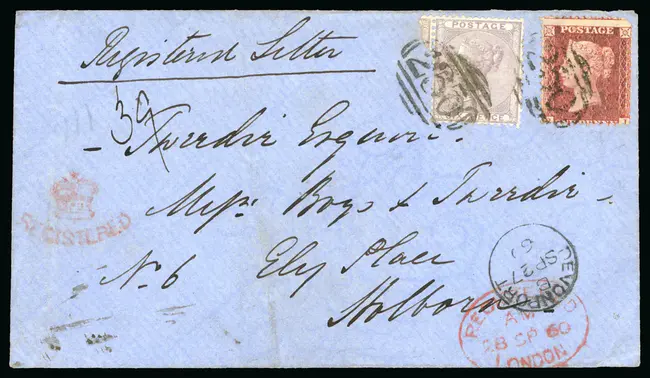 Registered Letter
POSTAGE
POSTAGE
250
39
Tweedie Esquire
Messrs Boys & Tweedie
No. 6 Ely Place
Holborn
REGISTERED
DEVONPORT
SP 27
60
REGISTERED
AM
28 SP 60
LONDON